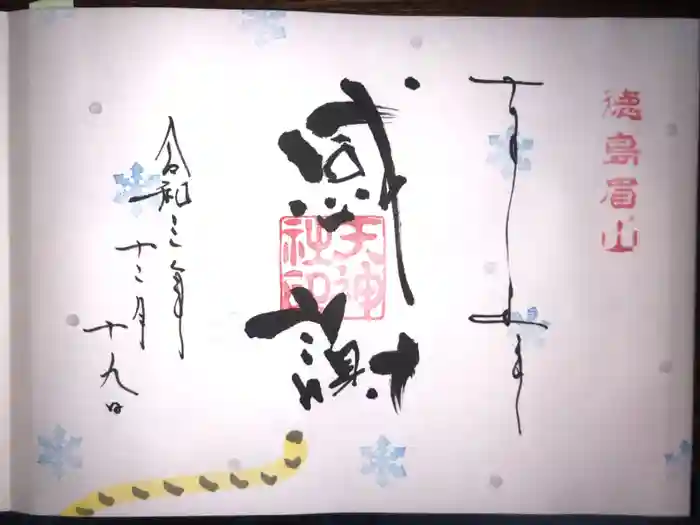 徳島眉山
感謝
天神社印
令和三年
十二月
十九日